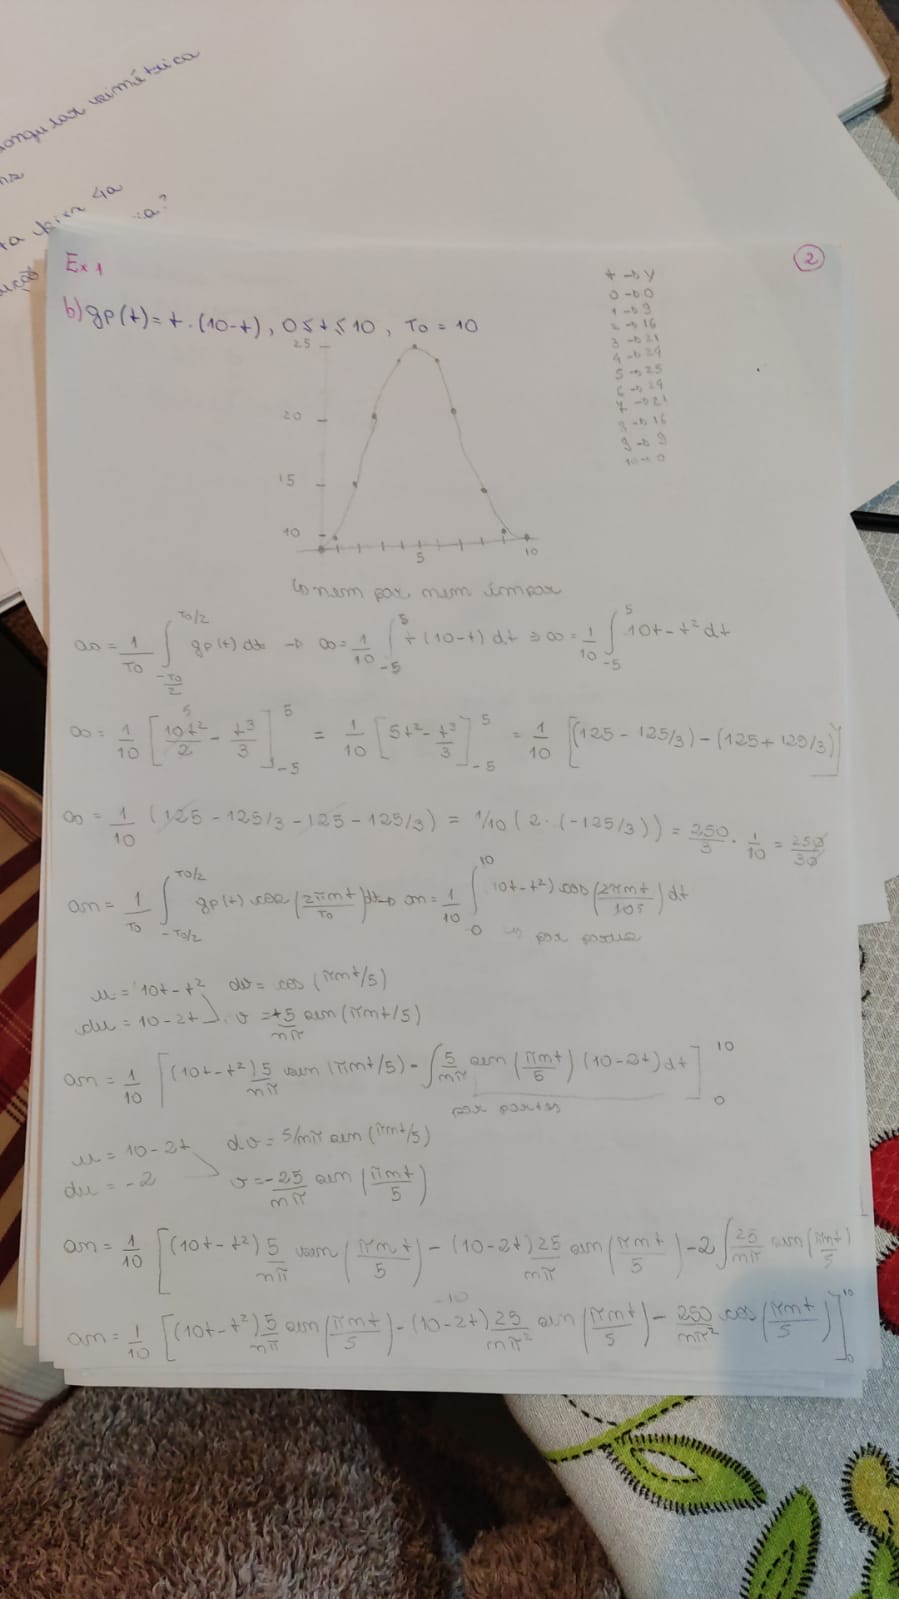 angular simétrica
4a
Ex 1
2
b) gp(t) = t.(10-t), 0≤t≤10, T0 = 10
t → y
0 → 0
1 → 9
2 → 16
3 → 21
4 → 24
5 → 25
6 → 24
7 → 21
8 → 16
9 → 9
10 → 0
25
20
15
10
5
10
↳ nem par nem ímpar
a0 = 1/T0 ∫_{-T0/2}^{T0/2} gp(t) dt → a0 = 1/10 ∫_{-5}^{5} t(10-t) dt ⇒ a0 = 1/10 ∫_{-5}^{5} 10t - t² dt
a0 = 1/10 [10t²/2 - t³/3]_{-5}^{5} = 1/10 [5t² - t³/3]_{-5}^{5} = 1/10 [(125 - 125/3) - (125 + 125/3)]
a0 = 1/10 (125 - 125/3 - 125 - 125/3) = 1/10 (2·(-125/3)) = 250/3 · 1/10 = 250/30
an = 1/T0 ∫_{-T0/2}^{T0/2} gp(t) cos(2πnt/T0) dt → an = 1/10 ∫_{0}^{10} 10t - t²) cos(2πnt/105) dt
↳ por partes
u = 10t - t² dv = cos(πnt/5)
du = 10 - 2t v = +5/nπ sen(πnt/5)
an = 1/10 [(10t - t²) 5/nπ sen(πnt/5) - ∫ 5/nπ sen(πnt/5) (10-2t) dt]_{0}^{10}
por partes
u = 10 - 2t dv = 5/nπ sen(πnt/5)
du = -2 v = -25/nπ sen(πnt/5)
an = 1/10 [(10t - t²) 5/nπ sen(πnt/5) - (10-2t) 25/nπ sen(πnt/5) - 2 ∫ 25/nπ sen(πnt/5)
-10
an = 1/10 [(10t - t²) 5/nπ sen(πnt/5) - (10-2t) 25/nπ² sen(πnt/5) - 250/nπ² cos(πnt/5)]_{0}^{10}